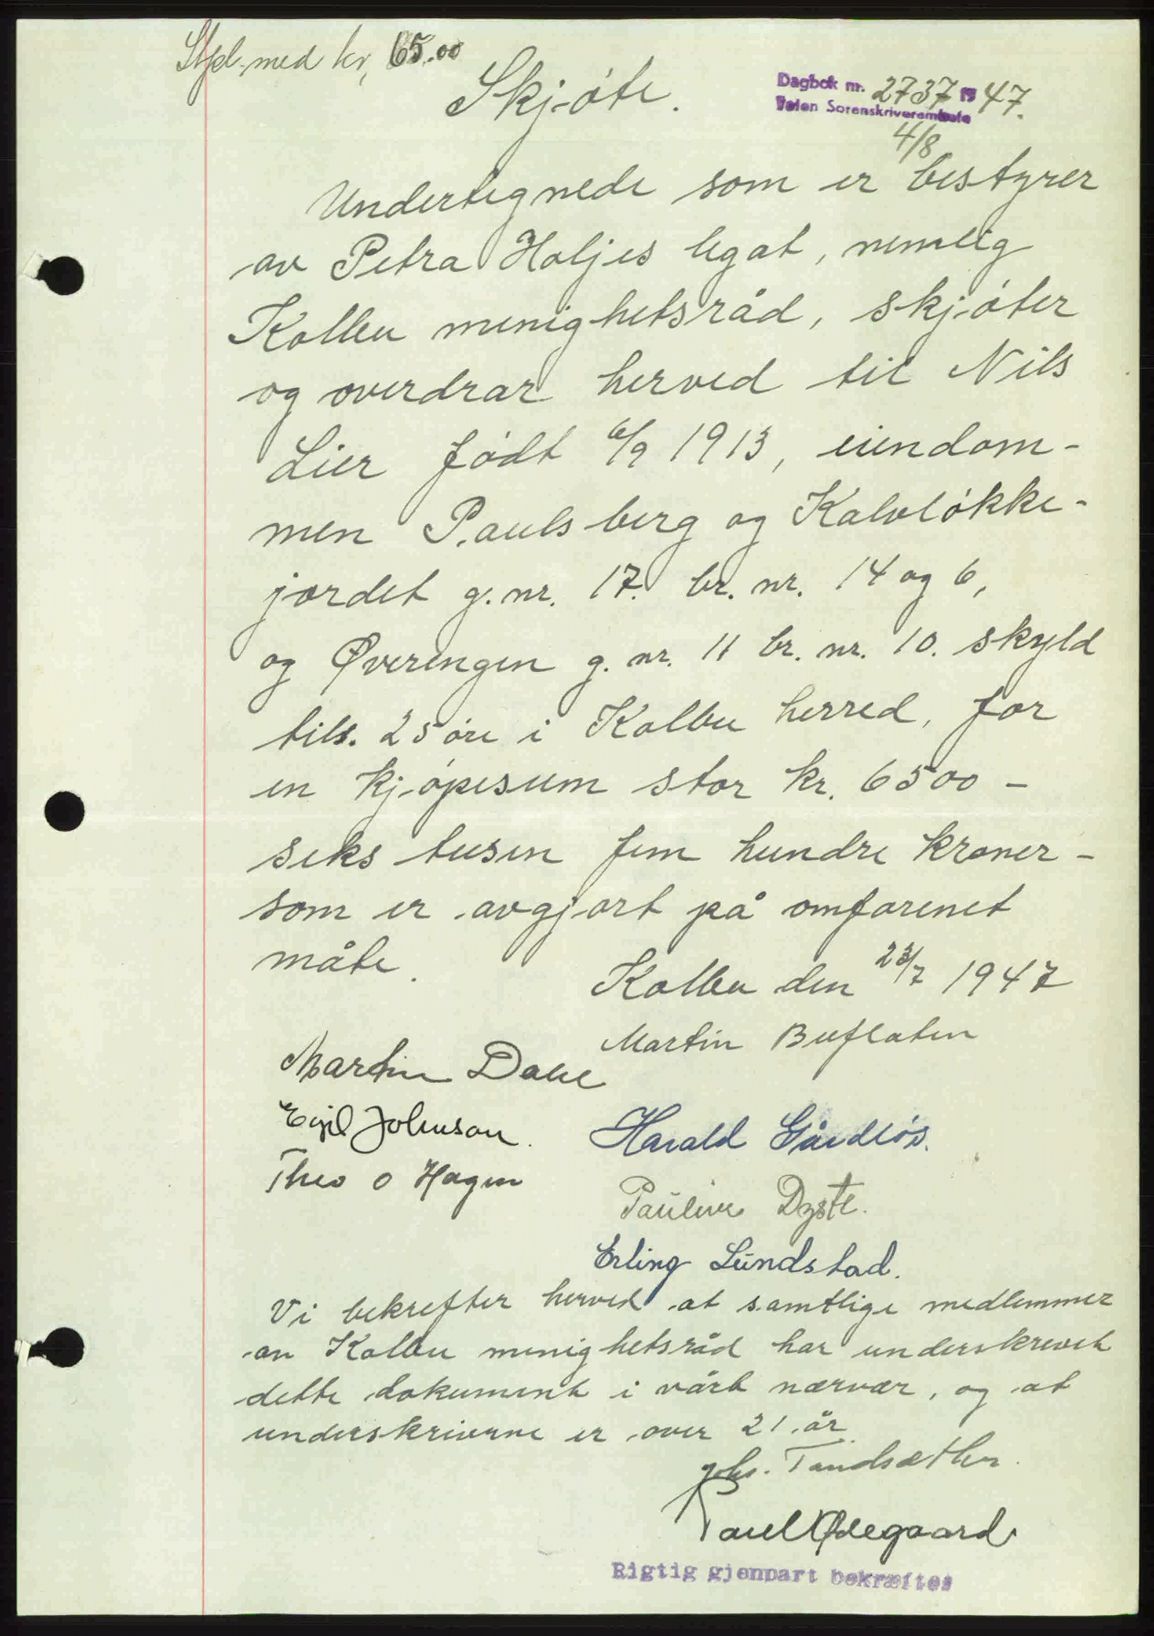 Stpl. med kr. 65.00
Skjøte.
Dagbok nr. 2737 19 47.
Toten Sorenskriverembete
4/8
Undertegnede som er bestyrer
av Petra Holjes legat, nemlig
Kolbu menighetsråd, skjøter
og overdrar herved til Nils
Lier født 6/9 1913, eiendom-
men Paulsberg og Kalvløkke-
jordet g.nr. 17. br. nr. 14 og 6,
og Øverengen g. nr. 11 br. nr. 10. skyld
tils. 25 øre i Kolbu herred, for
en kjøpesum stor kr. 6500 -
seks tusen fem hundre kroner -
som er avgjort på omforenet
måte.
Kolbu den 23/7 1947
Martin Buflaten
Martin Dahl
Egil Johnson.
Harald Gårdløs.
Theo O Hagen
Pauline Dyste.
Erling Lundstad.
Vi bekrefter herved at samtlige medlemmer
av Kolbu menighetsråd har underskrevet
dette dokument i vårt nærvær, og at
underskriverne er over 21 år.
Johs. Tandsæther.
Paul Ødegaard.
Rigtig gjenpart bekræftes